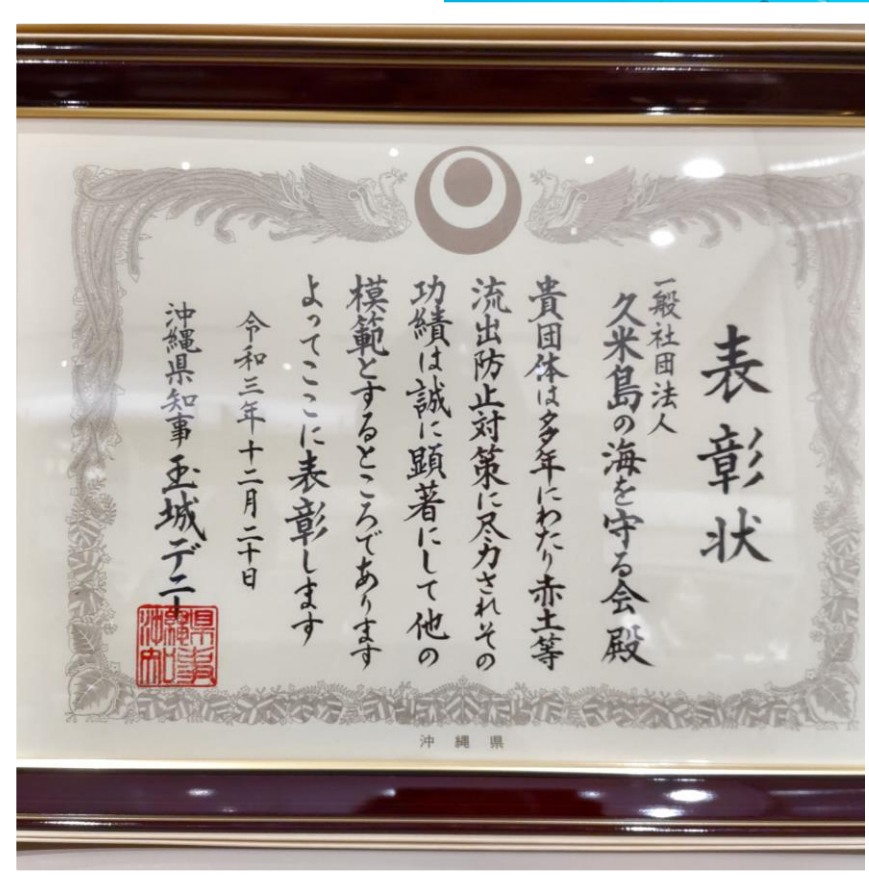 表彰状
一般社団法人
久米島の海を守る会 殿
貴団体は多年にわたり赤土等
流出防止対策に尽力されその
功績は誠に顕著にして他の
模範とするところであります
よってここに表彰します
令和三年十二月二十日
沖縄県知事 玉城デニー
沖縄県